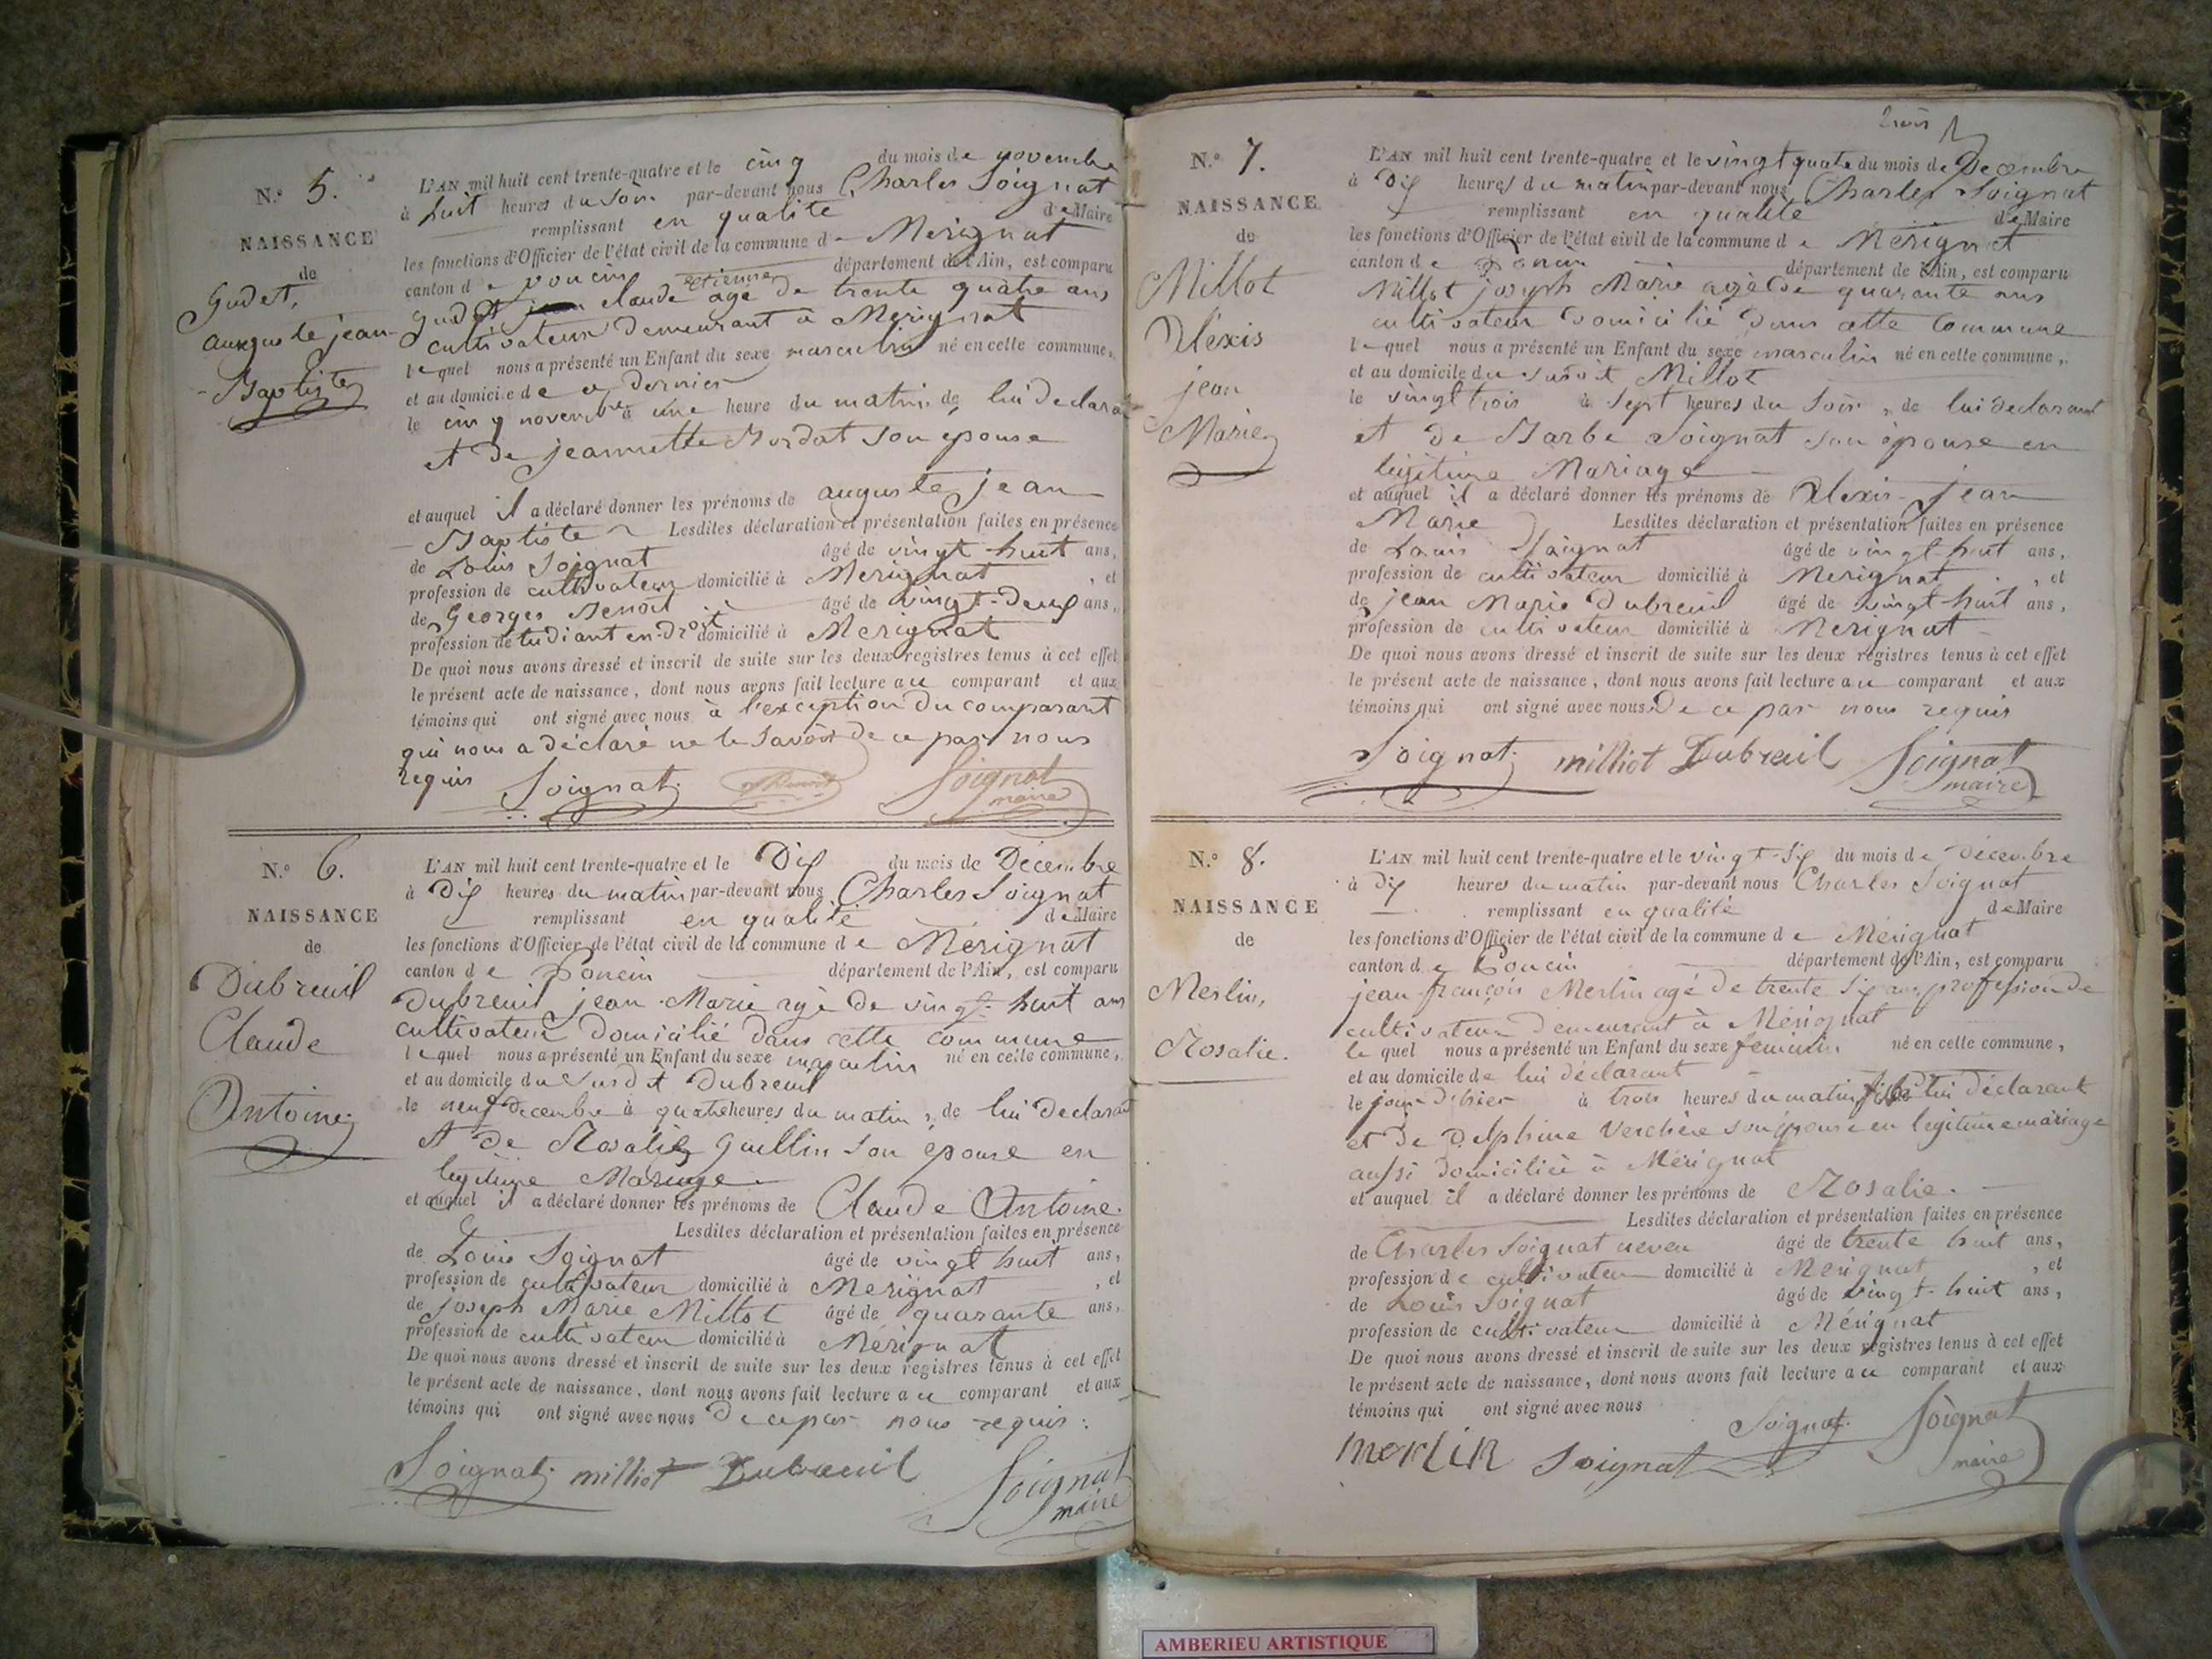 N.° 5.
NAISSANCE
de
Gudet,
auguste jean-
-Baptiste
L'AN mil huit cent trente-quatre et le cinq du mois de novembre
à huit heures du soir par-devant nous Charles Soignat
remplissant en qualité de Maire
les fonctions d'Officier de l'état civil de la commune de Merignat
canton de poncin département de l'Ain, est comparu
Gudet claude etienne agé de trente quatre ans
cultivateur demeurant à Merignat
lequel nous a présenté un Enfant du sexe masculin né en cette commune,
et au domicile de ce dernier
le cinq novembre à une heure du matin, de lui déclarant
et de jeannette Bordat son epouse
et auquel il a déclaré donner les prénoms de auguste jean
Baptiste Lesdites déclaration et présentation faites en présence
de Louis Soignat âgé de vingt-huit ans,
profession de cultivateur domicilié à Merignat , et
de Georges Benoit âgé de vingt-deux ans,
profession de étudiant en droit domicilié à Merignat
De quoi nous avons dressé et inscrit de suite sur les deux registres tenus à cet effet
le présent acte de naissance, dont nous avons fait lecture au comparant et aux
témoins qui ont signé avec nous à l'exception du comparant
qui nous a déclaré ne le savoir de ce par nous
requis Soignat Benoit Soignat
maire
N.° 6.
NAISSANCE
de
Dubreuil
Claude
Antoine
L'AN mil huit cent trente-quatre et le Dix du mois de Décembre
à Dix heures du matin par-devant nous Charles Soignat
remplissant en qualité de Maire
les fonctions d'Officier de l'état civil de la commune de Mérignat
canton de Poncin département de l'Ain, est comparu
Dubreuil jean-Marie agé de vingt-huit ans
cultivateur domicilié dans cette commune
lequel nous a présenté un Enfant du sexe masculin né en cette commune,
et au domicile du susdit Dubreuil
le neuf decembre à quatre heures du matin, de lui Declarant
et de Rosalie Guillin son epouse en
legitime Mariage
et auquel il a déclaré donner les prénoms de Claude Antoine.
Lesdites déclaration et présentation faites en présence
de Louis Soignat âgé de vingt huit ans,
profession de cultivateur domicilié à Merignat , et
de joseph Marie Millot âgé de quarante ans,
profession de cultivateur domicilié à Mérignat
De quoi nous avons dressé et inscrit de suite sur les deux registres tenus à cet effet
le présent acte de naissance, dont nous avons fait lecture au comparant et aux
témoins qui ont signé avec nous de ce par nous requis.
Soignat milliot Dubreuil Soignat
maire
N.° 7.
NAISSANCE
de
Millot
Alexis
jean
Marie
L'AN mil huit cent trente-quatre et le vingt quatre du mois de Decembre
à Dix heures du matin par-devant nous Charles Soignat
remplissant en qualité de Maire
les fonctions d'Officier de l'état civil de la commune de Mérignat
canton de Poncin département de l'Ain, est comparu
Millot joseph Marie agé de quarante ans
cultivateur domicilié dans cette Commune
lequel nous a présenté un Enfant du sexe masculin né en cette commune,
et au domicile du susdit Millot
le vingt trois à sept heures du soir, de lui declarant
et de Barbe Soignat son épouse en
legitime Mariage
et auquel il a déclaré donner les prénoms de Alexis-jean
Marie Lesdites déclaration et présentation faites en présence
de Louis Soignat âgé de vingt-huit ans,
profession de cultivateur domicilié à Merignat , et
de jean Marie Dubreuil âgé de vingt-huit ans,
profession de cultivateur domicilié à Merignat
De quoi nous avons dressé et inscrit de suite sur les deux registres tenus à cet effet
le présent acte de naissance, dont nous avons fait lecture au comparant et aux
témoins qui ont signé avec nous de ce par nous requis
Soignat milliot Dubreuil Soignat
maire
N.° 8.
NAISSANCE
de
Merlin,
Rosalie.
L'AN mil huit cent trente-quatre et le vingt-six du mois de décembre
à dix heures du matin par-devant nous Charles Soignat
remplissant en qualité de Maire
les fonctions d'Officier de l'état civil de la commune de Mérignat
canton de Poncin département de l'Ain, est comparu
jean-françois Merlin agé de trente six ans, profession de
cultivateur demeurant à Mérignat
lequel nous a présenté un Enfant du sexe feminin né en cette commune,
et au domicile de lui déclarant
le jour d'hier à trois heures du matin, de lui déclarant
et de Delphine Verchère son épouse en legitime mariage
aussi domiciliée à Mérignat
et auquel il a déclaré donner les prénoms de Rosalie.
Lesdites déclaration et présentation faites en présence
de Charles Soignat neveu âgé de trente huit ans,
profession de cultivateur domicilié à Merignat , et
de Louis Soignat âgé de vingt-huit ans,
profession de cultivateur domicilié à Mérignat
De quoi nous avons dressé et inscrit de suite sur les deux registres tenus à cet effet
le présent acte de naissance, dont nous avons fait lecture au comparant et aux
témoins qui ont signé avec nous
merlin Soignat Soignat Soignat
maire
AMBERIEU ARTISTIQUE